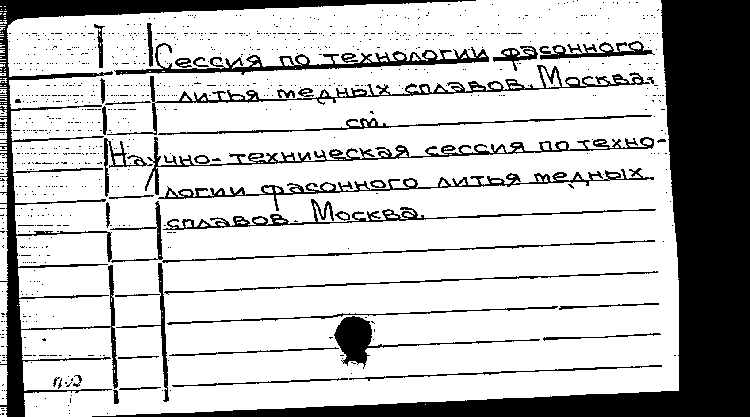 Сессия по технологии фасонного
литья медных сплавов. Москва.
см.
Научно-техническая сессия по техно-
логии фасонного литья медных
сплавов. Москва.